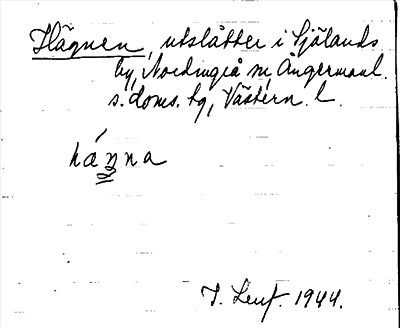 Hägnen, utslåtter i Själands
by, Nordingrå sn, Ångermanl.
s. doms. tg, Västern. l.
hánna
J. Lenf. 1944.